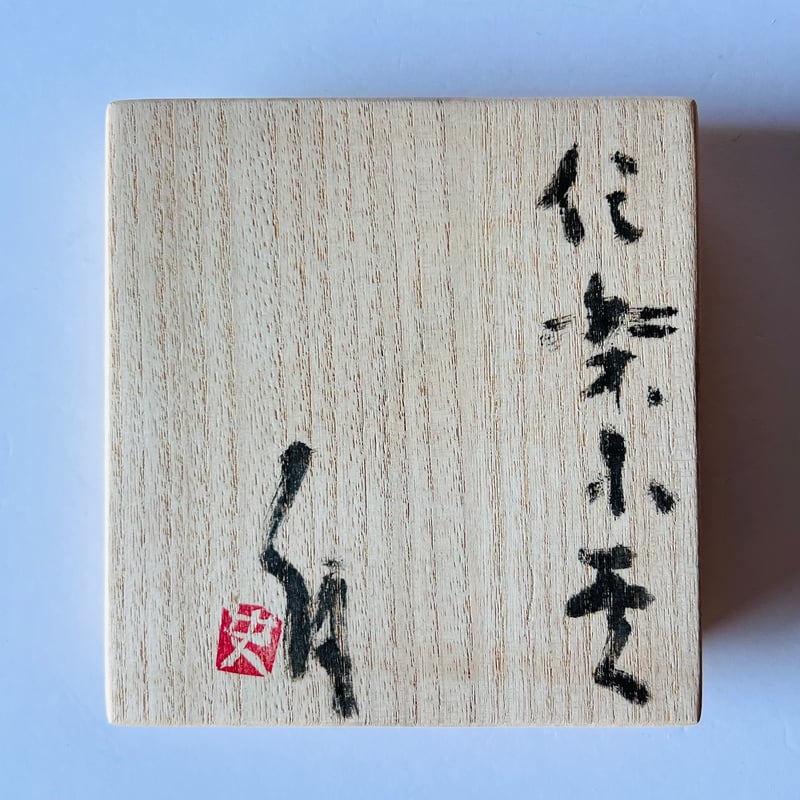 信楽小壺
史